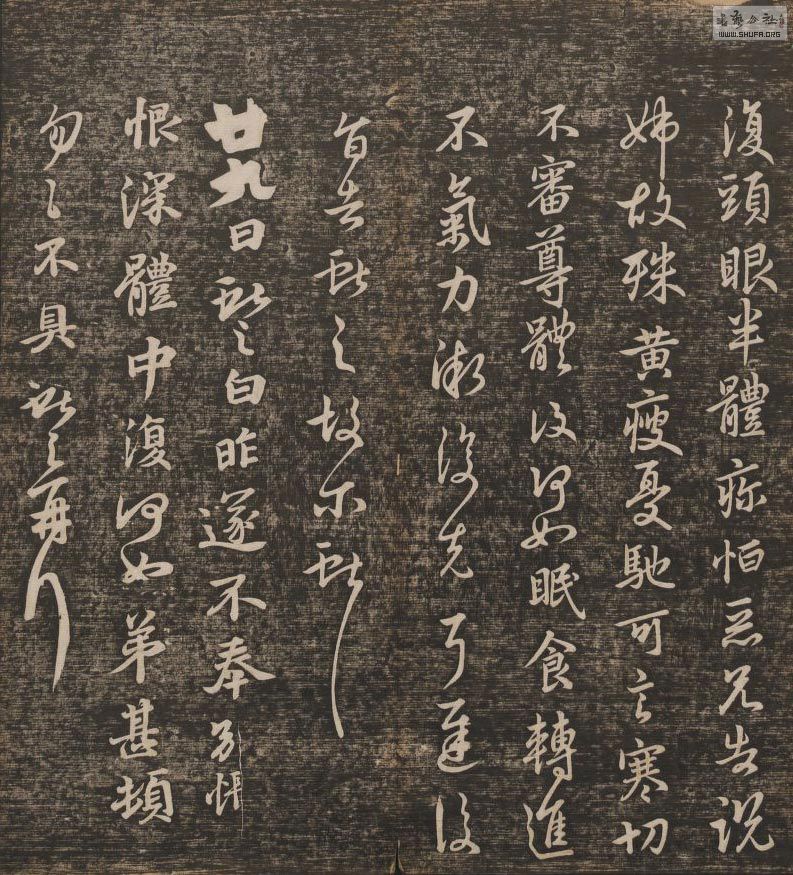 復頭眼半體疼怕惡兄告說
姊故殊黃瘦憂馳可言寒切
不審尊體復何如眠食轉進
不氣力漸復先
旨告獻之故示獻
廿九日獻之白昨遂不奉別悵
恨深體中復何如弟甚頓
匆匆不具獻之再拜
書藝公社
WWW.SHUFA.ORG